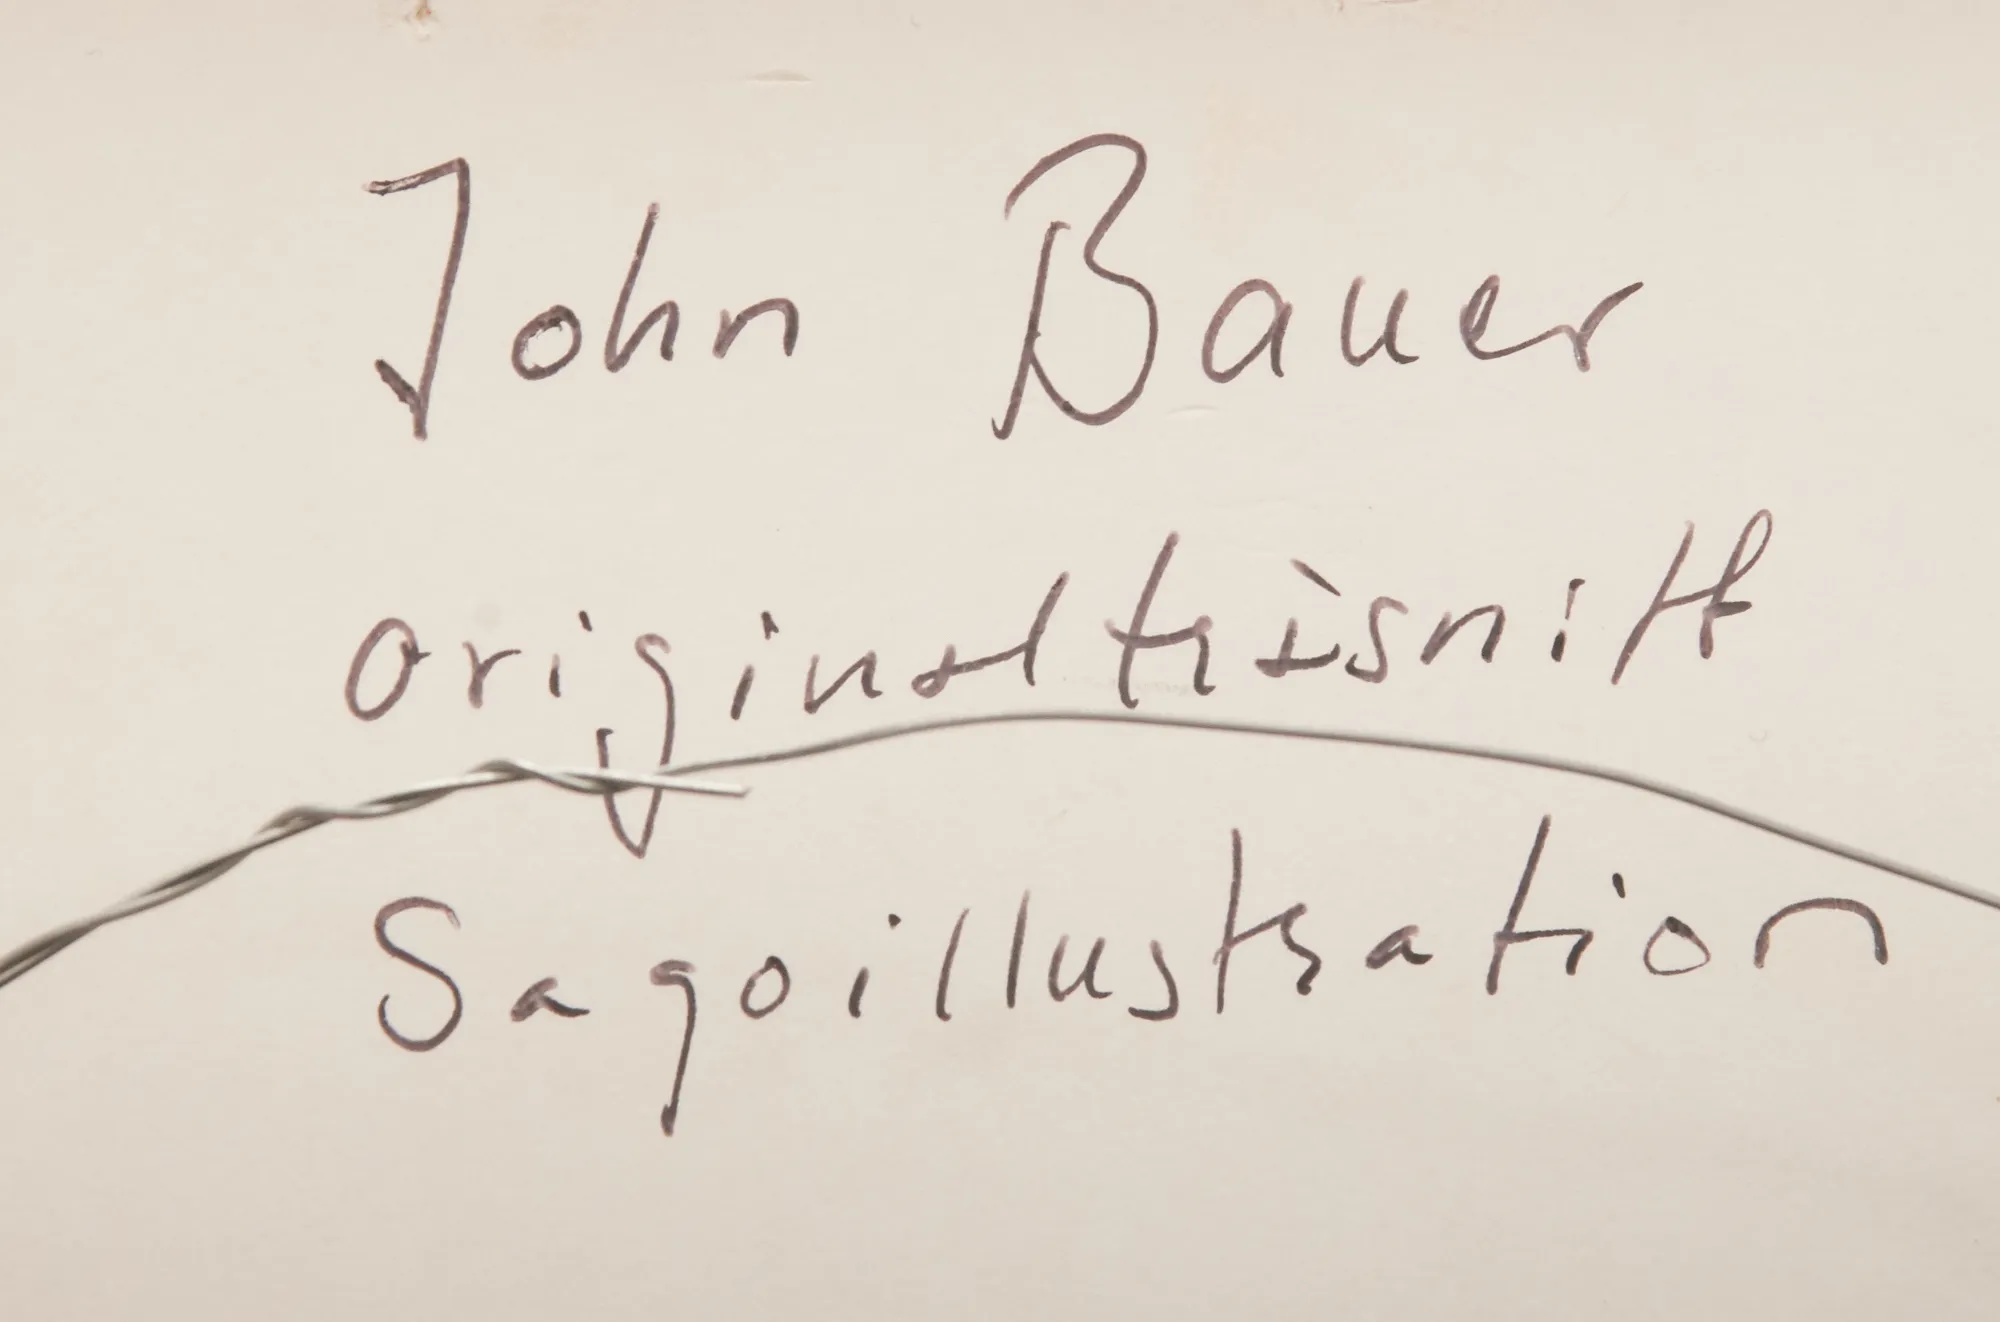 John Bauer
originalträsnitt
Sagoillustration